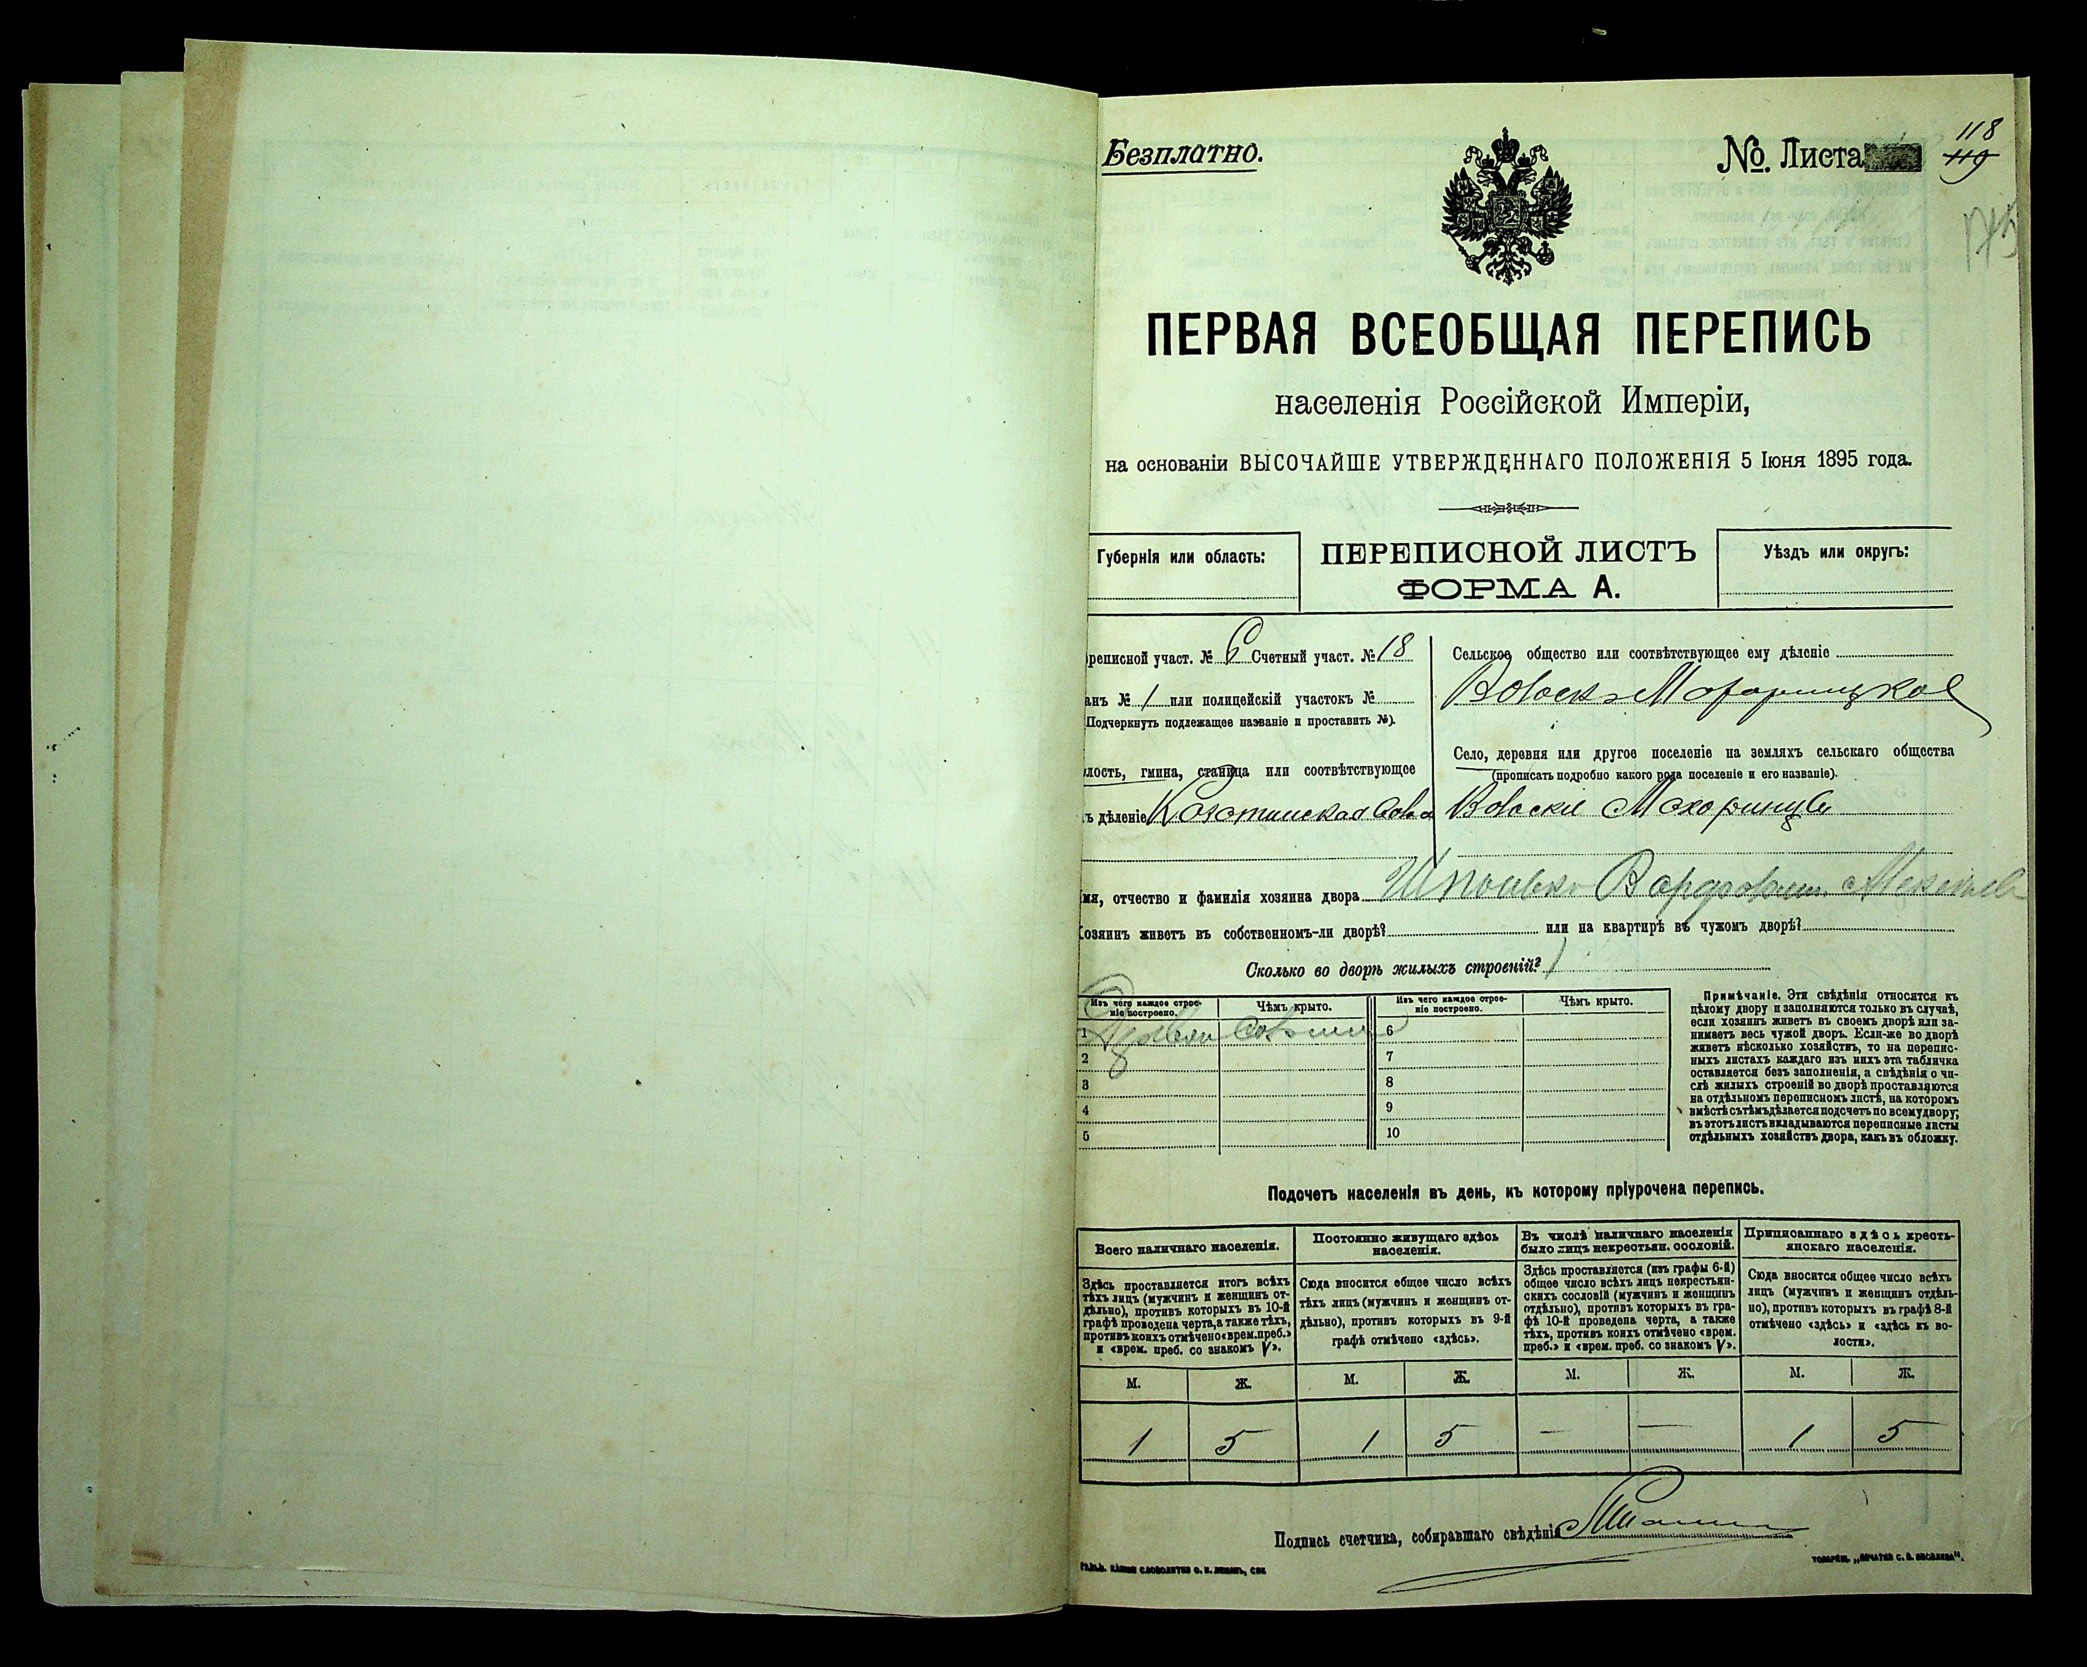 Безплатно.
№ Листа
118
119
175
ПЕРВАЯ ВСЕОБЩАЯ ПЕРЕПИСЬ
населенія Россійской Имперіи,
на основаніи ВЫСОЧАЙШЕ УТВЕРЖДЕННАГО ПОЛОЖЕНІЯ 5 Іюня 1895 года.
Губернія или область:
ПЕРЕПИСНОЙ ЛИСТЪ
ФОРМА А.
Уѣздъ или округъ:
реписной участ. № 6 Счетный участ. № 18
анъ № 1 или полицейскій участокъ №
Подчеркнуть подлежащее названіе и проставить №).
лость, гмина, станица или соотвѣтствующее
ъ дѣленіе
Сельское общество или соотвѣтствующее ему дѣленіе
Село, деревня или другое поселеніе на земляхъ сельскаго общества
(прописать подробно какого рода поселеніе и его названіе).
Махаринцы
мя, отчество и фамилія хозяина двора
озяинъ живетъ въ собственномъ-ли дворѣ? или на квартирѣ въ чужомъ дворѣ?
Сколько во дворѣ жилыхъ строеній? 1
Изъ чего каждое строе-
ніе построено.
Чѣмъ крыто.
Изъ чего каждое строе-
ніе построено.
Чѣмъ крыто.
1 6
2 7
3 8
4 9
5 10
Примѣчаніе. Эти свѣдѣнія относятся къ
цѣлому двору и заполняются только въ случаѣ,
если хозяинъ живетъ въ своемъ дворѣ или за-
нимаетъ весь чужой дворъ. Если-же во дворѣ
живетъ нѣсколько хозяйствъ, то на перепис-
ныхъ листахъ каждаго изъ нихъ эта табличка
оставляется безъ заполненія, а свѣдѣнія о чи-
слѣ жилыхъ строеній во дворѣ проставляются
на отдѣльномъ переписномъ листѣ, на которомъ
вмѣстѣ съ тѣмъ дѣлается подсчетъ по всему двору;
въ этотъ листъ вкладываются переписные листы
отдѣльныхъ хозяйствъ двора, какъ въ обложку.
Подсчетъ населенія въ день, къ которому пріурочена перепись.
Всего наличнаго населенія.
Здѣсь проставляется итогъ всѣхъ
тѣхъ лицъ (мужчинъ и женщинъ от-
дѣльно), противъ которыхъ въ 10-й
графѣ проведена черта, а также тѣхъ,
противъ коихъ отмѣчено «врем. преб.»
и «врем. преб. со знакомъ V».
Постоянно живущаго здѣсь
населенія.
Сюда вносится общее число всѣхъ
тѣхъ лицъ (мужчинъ и женщинъ от-
дѣльно), противъ которыхъ въ 9-й
графѣ отмѣчено «здѣсь».
Въ числѣ наличнаго населенія
было лицъ некрестьян. сословій.
Здѣсь проставляется (изъ графы 6-й)
общее число всѣхъ лицъ некрестьян-
скихъ сословій (мужчинъ и женщинъ
отдѣльно), противъ которыхъ въ гра-
фѣ 10-й проведена черта, а также
тѣхъ, противъ коихъ отмѣчено «врем.
преб.» и «врем. преб. со знакомъ V».
Приписаннаго здѣсь кресть-
янскаго населенія.
Сюда вносится общее число всѣхъ
лицъ (мужчинъ и женщинъ отдѣль-
но), противъ которыхъ въ графѣ 8-й
отмѣчено «здѣсь» и «здѣсь въ во-
лости».
М. Ж. М. Ж. М. Ж. М. Ж.
1 5 1 5 — — 1 5
Подпись счетчика, собиравшаго свѣдѣнія